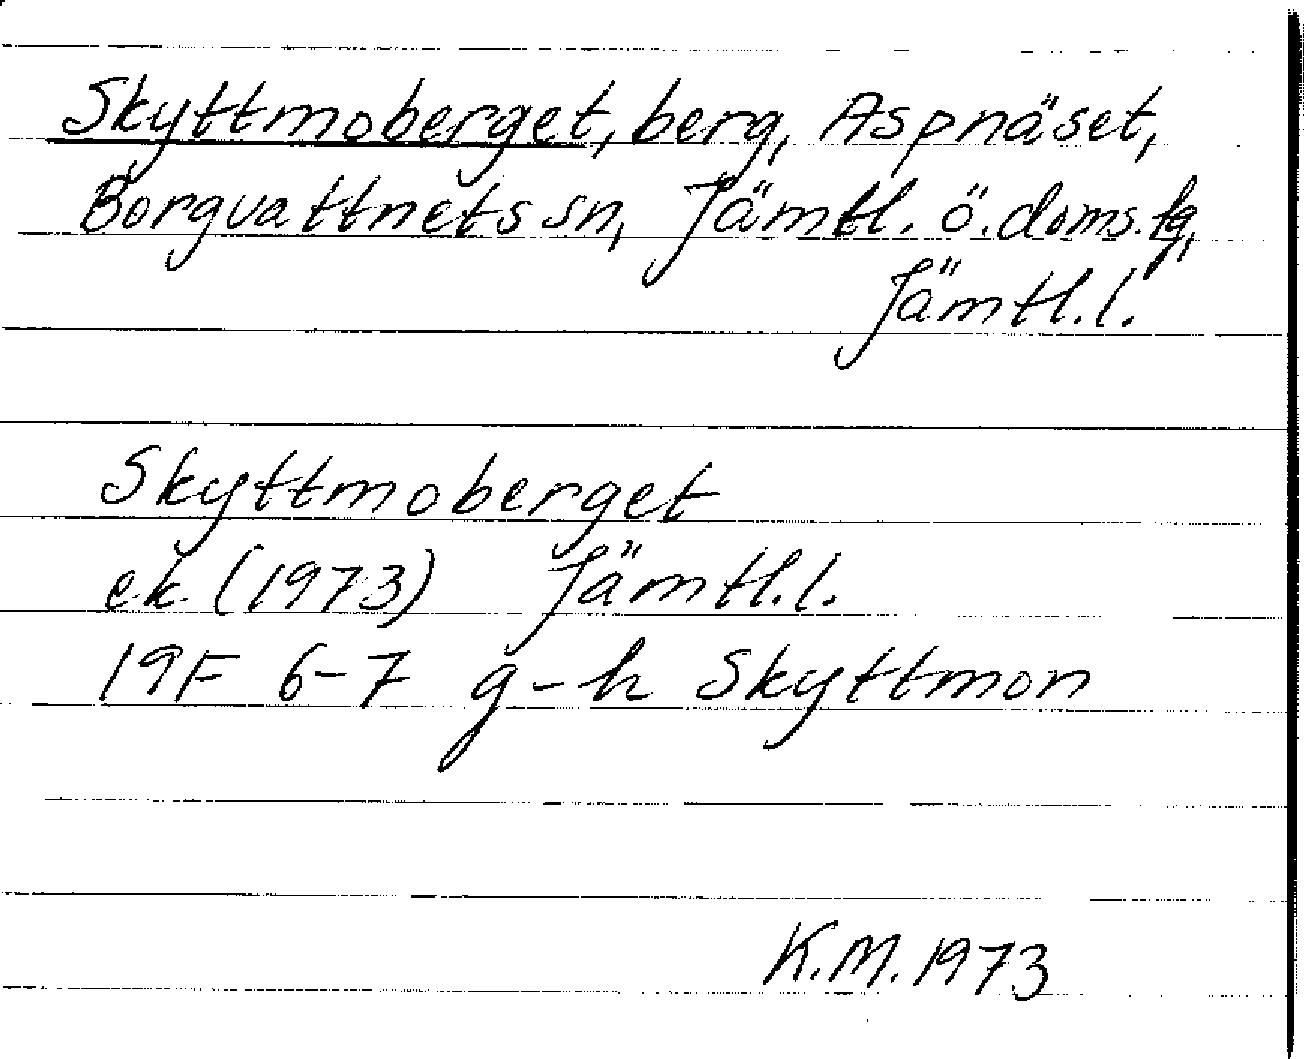 Skyttmoberget, berg, Aspnäset,
Borgvattnets sn, Jämtl. ö. doms. tg,
Jämtl. l.
Skyttmoberget
ek (1973) Jämtl. l.
19F 6-7 g-h Skyttmon
K.M. 1973